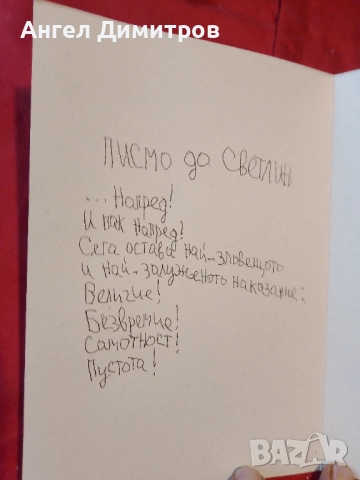 Ангел Димитров
ПИСМО до СВЕТЛИН
... Напред!
И пак напред!
Сега остава най-зловещото
и най-заслуженото наказание:
Величие!
Безвремие!
Самотност!
Пустота!
BAZAR